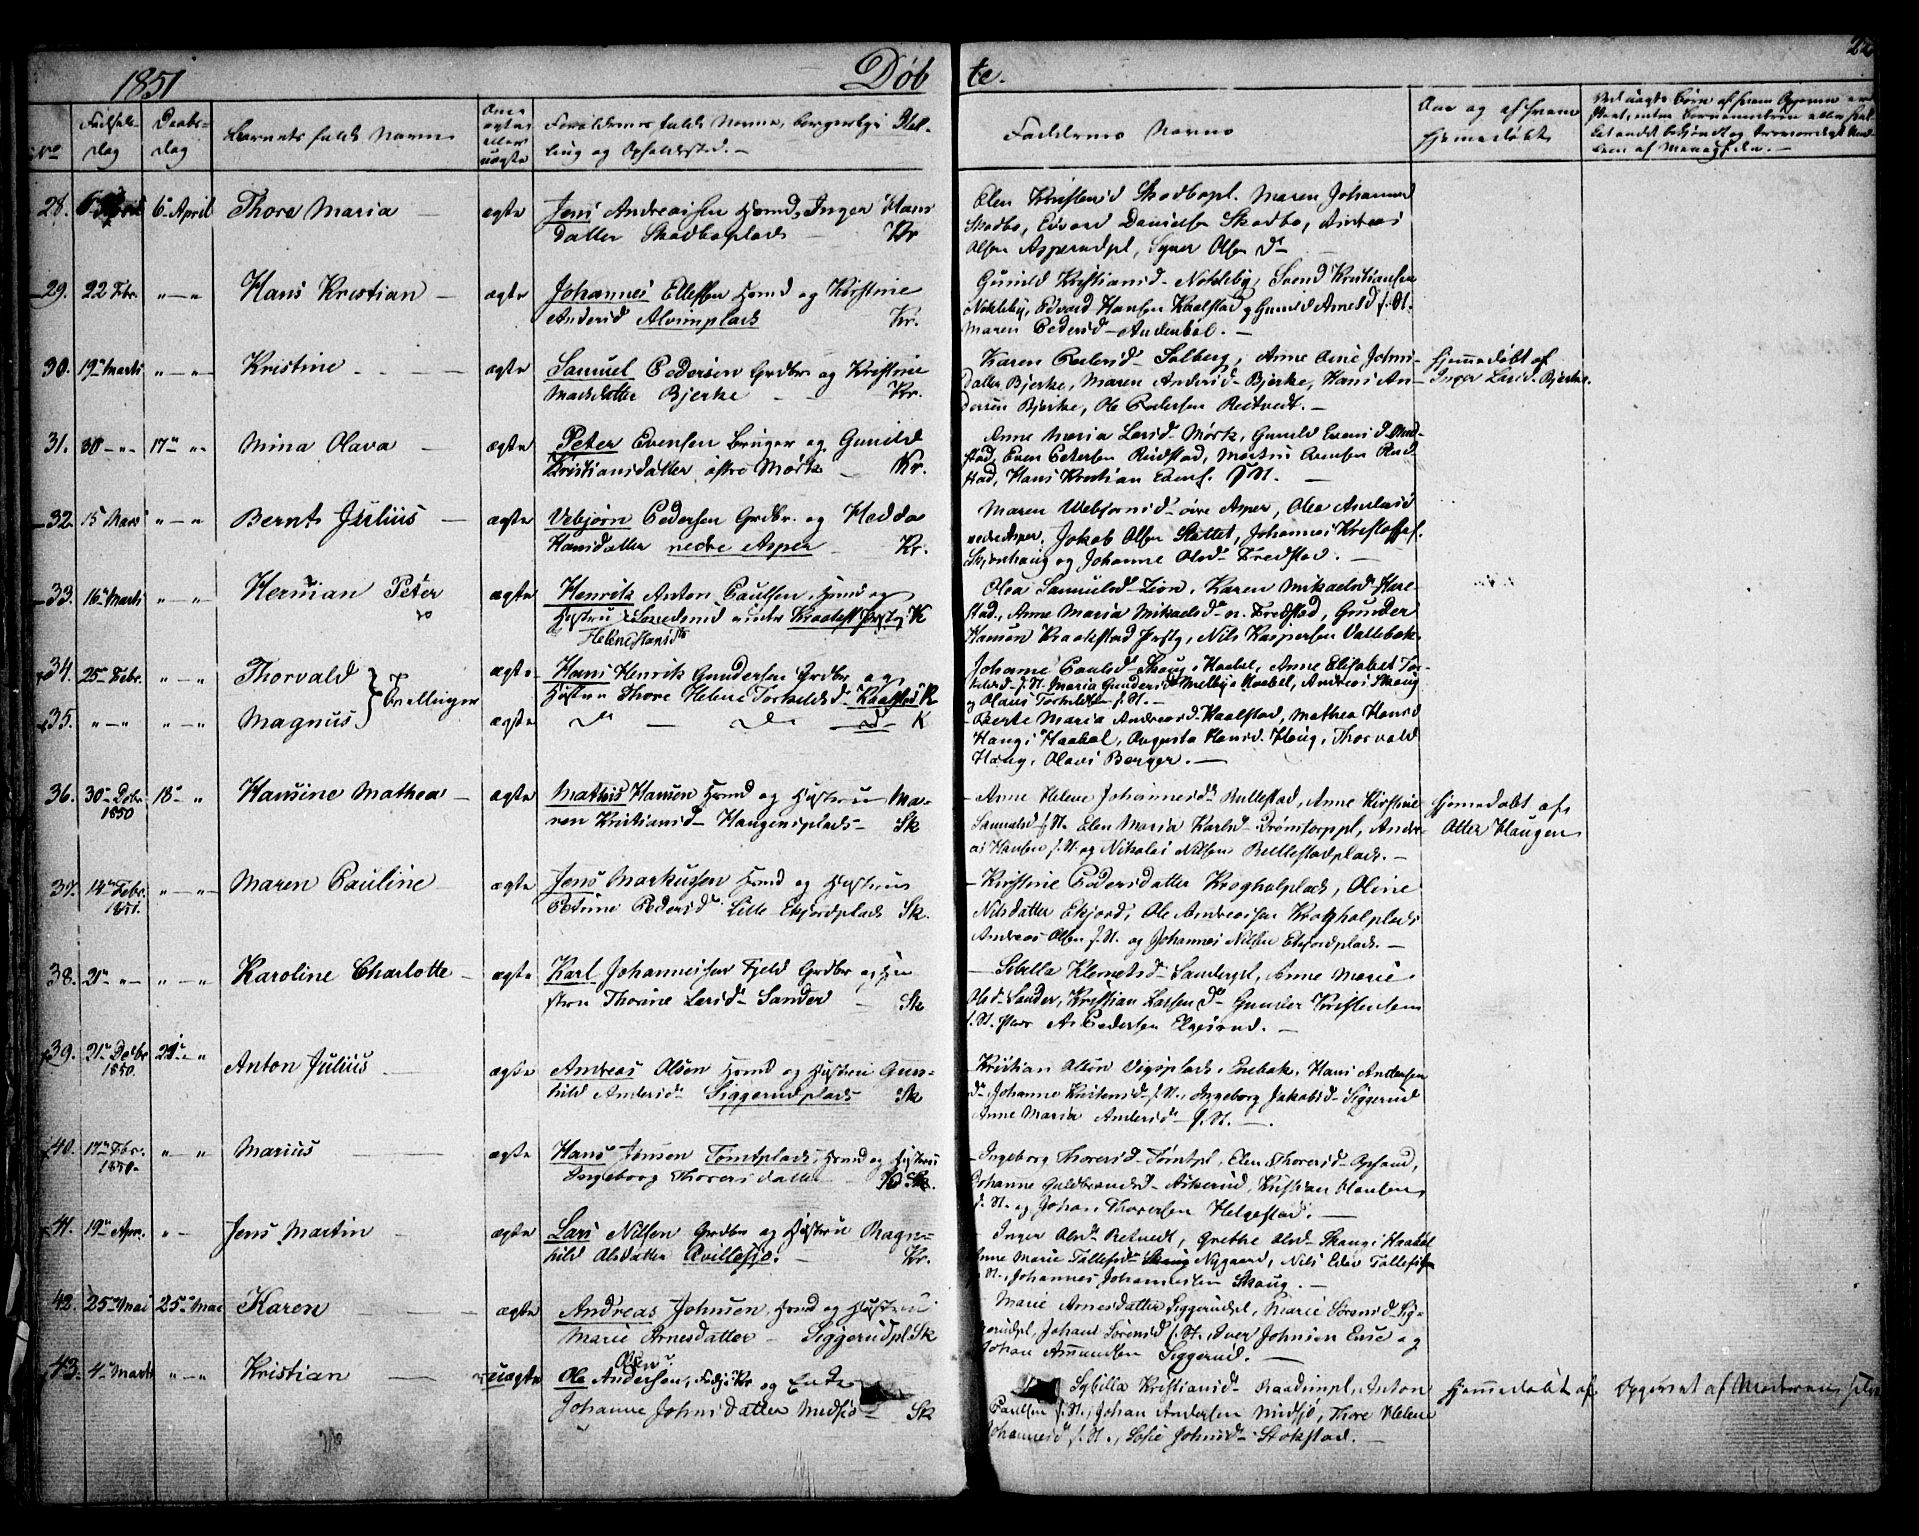 1851 Døbte. 22
No
Fødsels-
dag
Daabs-
dag
Barnets fulde Navn
Om
ægte
eller
uægte
Forældrenes fulde Navne, borgerlige Stil-
ling og Opholdsted. —
Faddernes Navne
Om og af hvem
hjemmedøbt
28. 6 April Thore Maria — ægte Jens Andreassen Hmd, Inger Hans
datter Skodboplads — Kr
Elen Kristensd Skodbopl. Maren Johannes
Skodbo, Edvard Danielsen Skodbo, Andreas
Olsen Asperudpl, Syver Olsen do —
29. 22 Febr. " — " Hans Kristian — ægte Johannes Ellefsen Hmd og Kirstine
Andersd Alvimplads Kr.
Gunild Kristiansd — Nokleby, Svend Kristiansen
Nokleby, Edvard Hansen Kaalstad og Gunild Arnesd f. St.
Maren Pedersd — Anderbøl. —
30. 19 Marts " — " Kristine ægte Samuel Pedersen Grdbr og Kristine
Madsdatter Bjerke — Kr.
Karen Pedersd — Solberg, Anne Johns
datter Bjerke, Maren Andersd — Bjerke, Hans An-
dersen Bjerke, Ole Pedersen Reitvedt. —
Hjemmedøbt af
Inger Larsd. Bjerke.
31. 30 " — " 17 " " Mina Olava — ægte Peter Evensen Bruger og Gunild
Kristiansdatter østre Mørk — Kr.
Anne Maria Larsd — Mørk, Gunild Evensd Rud-
stad, Even Petersen Rudstad, Martin Evensen Rud
stad, Hans Kristian Evens. f. St. —
32. 15 Mars " — " Bernt Julius — ægte Vebjørn Pedersen Grdbr. og Hedda
Hansdatter nedre Asper — Kr.
Maren Webjørnsd — øvre Asper, Olea Andersd
nedre Asper, Jakob Olsen Slottet, Johannes Kristoffers.
og Johanne Olsd — Fredstad. —
33. 16 Marts " — " Herman Peter ægte Henrik Anton Paulsen, Hmd og
Hustru Kr
Helene Hansd
Olea Samuelsd — Zion, Karen Mikaelsd — Hare-
stad, Anne Maria Mikaelsd — n. Fredstad, Gunder
Hansen Kraakstad Prstg, Nils Kaspersen Vallebæk —
34. 25 Febr. " — " Thorvald } Tvillinger ægte Hans Henrik Gundersen Grdbr og
Hustru Thore Helene Torkeldsd. Kaalstad K
Johanne Paulsd — Skaug i Haabel, Anne Elisabet Tor-
keldsd — f. St. Maria Gundersd Melby i Haabel, Andreas Skaug
og Olaus Torkeldsen f. St. —
35. " — " " — " Magnus ægte do — do — do K
Berte Maria Andreasd — Kaalstad, Mathea Hansd
Haug i Haabel, Augusta Hansd. Haug, Thorvald
Haug, Olavs Berger. —
36. 30 Debr 1850 18 " Hansine Mathea — ægte Mathis Hansen Hmd og Hustru Ma-
ren Kristiansd — Haugensplads — Sk
— Anne Helene Johannesd Bullestad, Anne Kirstine
Samuelsd f. St. Elen Maria Karlsd — Drømtorppl, Andre-
as Hansen f. St. og Nikolai Nilsen Bullestadplads. —
Hjemmedøbt af
Otter Haugen
37. 14 Febr. 1851. " — " Maren Pauline — ægte Jens Markussen Hmd og Hustru
Petrine Pedersd Lille Ekjordplads Sk.
— Kirstine Pedersdatter Krogholplads, Oline
Nilsdatter Ekjord, Ole Andreassen Krogholplads
Andreas Olsen f. St. og Johannes Nilsen Ekjordplads. —
38. 21 " — " — " Karoline Charlotte — ægte Karl Johannessen Fjeld Grdbr og Hu
stru Thorine Larsd — Sander — Sk
— Sibilla Klemetsd — Sanderpl, Anne Marie
Olsd — Sander, Kristian Larsen do — Gunder Kristensen
f. St. Pedersen —
39. 21 Debr 1850. 21 " " Anton Julius — ægte Andreas Olsen Hmd og Hustru Gun-
hild Andersd — Siggerudplads Sk
Kristian Olsen Vigsplads, Enebak, Hans Andersen
do — Johanne Kristensd — f. St., Ingeborg Jakobsd — Siggerud
Anne Maria Andersd — f. St. —
40. 17 Febr. " " Marius — ægte Hans Jensen Tomtplads, Hmd og Hustru
Ingeborg Thoresdatter — Sk.
— Ingeborg Thoresd — Tomtpl, Elen Thoresd — Opsand,
Johanne Guldbrandsd — Askerud, Kristian Hansen
f. St. og Johan Thoresen Helgestad. —
41. 19 Apr. " — Jens Martin — ægte Lars Nilsen Grdbr og Hustru Ragn-
hild Olsdatter Qvillesjø. — Kr.
— Inger Olsd — Retvedt, Grethe Olsd — Skaug i Haabel
Anne Marie Tollefsd — Nygaard, Nils Eder Tollefsen
f. St., Johannes Johannessen Skaug. —
42. 25 Mai 25 Mai Karen — ægte Andreas Johnsen, Hmd og Hustru
Marie Arnesdatter — Siggerudpl Sk
Marie Arnesdatter Siggerudpl, Marie Sørensd Sig-
gerudpl, Johans Sørensd f. St. Iver Johnsen og
Johan Amundsen Siggerud. —
43. 4 Marts " — " Kristian — uægte Ole Andersen, og Enke
Olsen
Johanne Johnsdatter Midsjø — Sk
Sybilla Kristiansd — Raadimpl, Anton
Paulsen f. St., Johan Andersen Midsjø, Thore Helene
Johannesd f. St., Sofie Johnsd — Stokstad. —
Hjemmedøbt af. Opgivet af Moderen selv